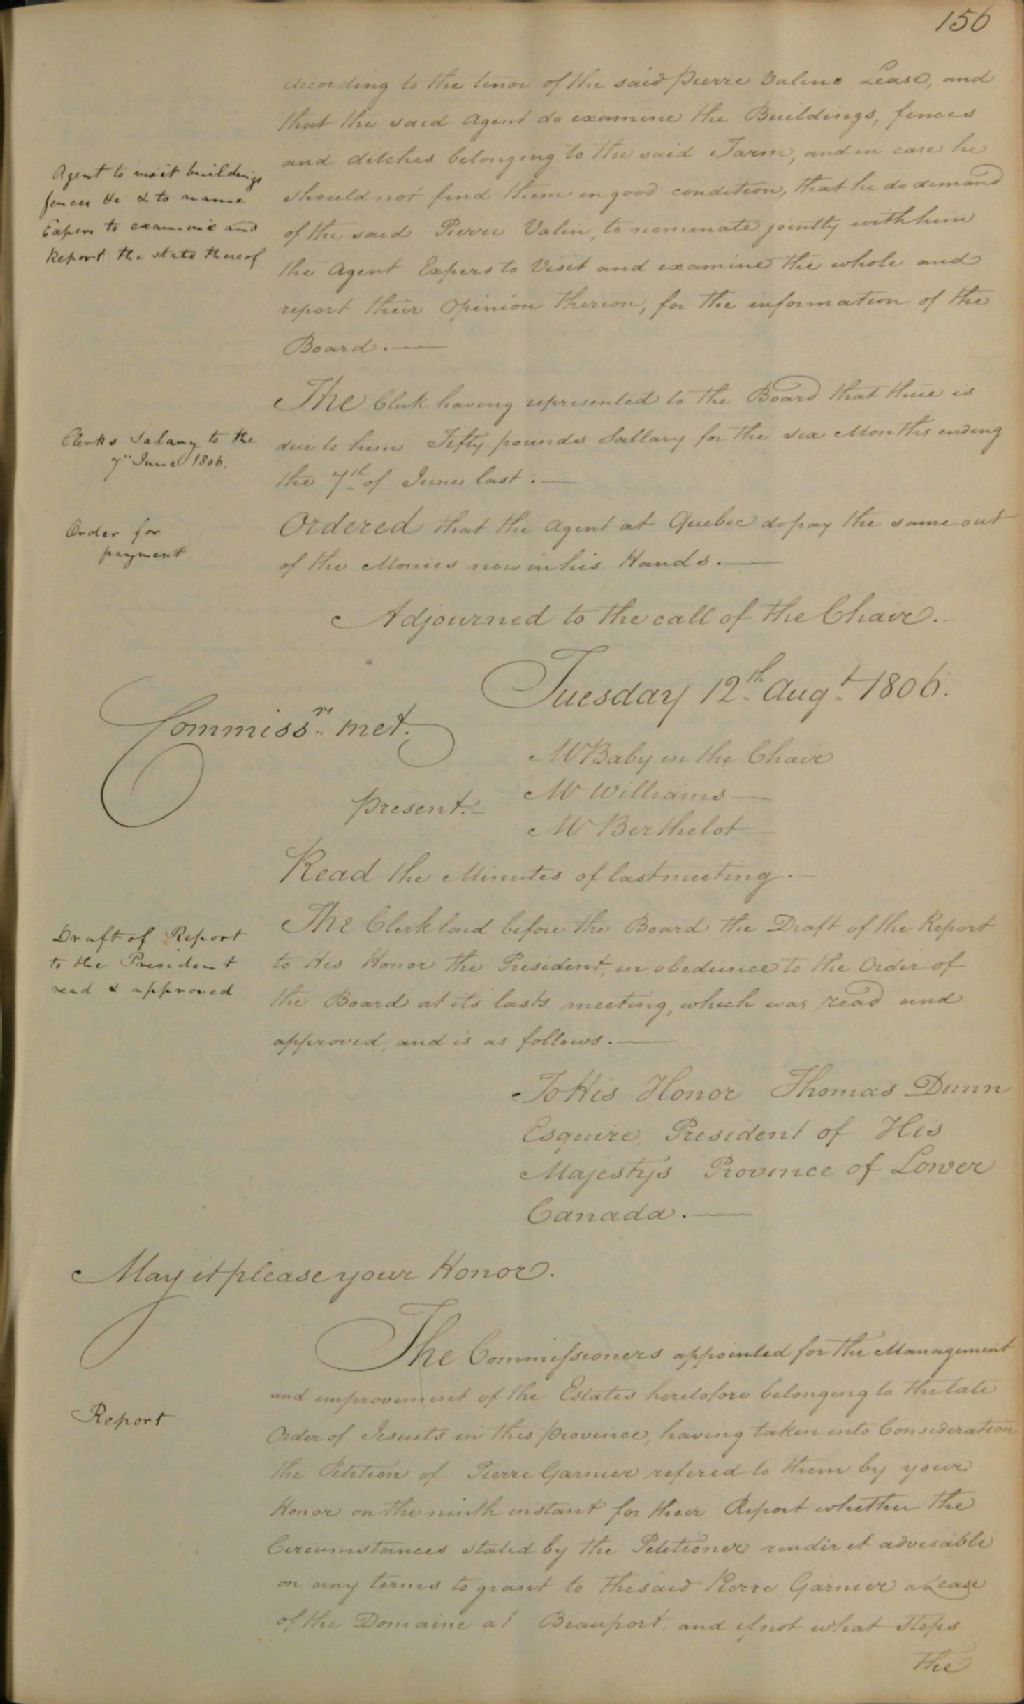 156
according to the tenor of the said Pierre Valins Lease, and
that the said Agent do examine the Buildings, fences
and ditches belonging to the said Farm, and in case he
should not find them in good condition, that he do demand
of the said Pierre Valin, to nominate jointly with him
the Agent Expers to Visit and examine the whole and
report their Opinion thereon, for the information of the
Board. —
Agent to visit buildings
fences &c & to name
Expers to examine and
Report the state thereof
The Clerk having represented to the Board that there is
due to him Fifty pounds Sallary for the six Months ending
the 7th of June last. —
Clerks Salary to the
7th June 1806.
Ordered that the Agent at Quebec do pay the same out
of the Monies now in his Hands. —
Order for
payment
Adjourned to the call of the Chair. —
Tuesday 12th Augt. 1806.
Commissrs. met.
Present. —
Mr Baby in the Chair
Mr Williams —
Mr Berthelot —
Read the Minutes of last meeting. —
The Clerk laid before the Board the Draft of the Report
to His Honor the President, in obedience to the Order of
the Board at its last meeting, which was read and
approved, and is as follows. —
Draft of Report
to the President
read & approved
To His Honor Thomas Dunn
Esquire, President of His
Majesty's Province of Lower
Canada. —
May it please your Honor.
The Commissioners appointed for the Management
and improvement of the Estates heretofore belonging to the late
Order of Jesuits in this province, having taken into Consideration
the Petition of Pierre Garnier refered to them by your
Honor on the ninth instant for their Report whether the
Circumstances stated by the Petitioner render it advisable
on any terms to grant to the said Pierre Garnier a Lease
of the Domaine at Beauport, and if not what Steps
the
Report